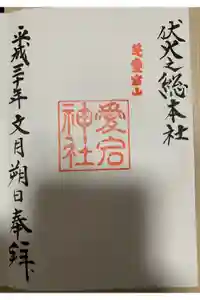 伏火之総本社
愛宕山
愛宕
神社
平成三十年文月朔日奉拝